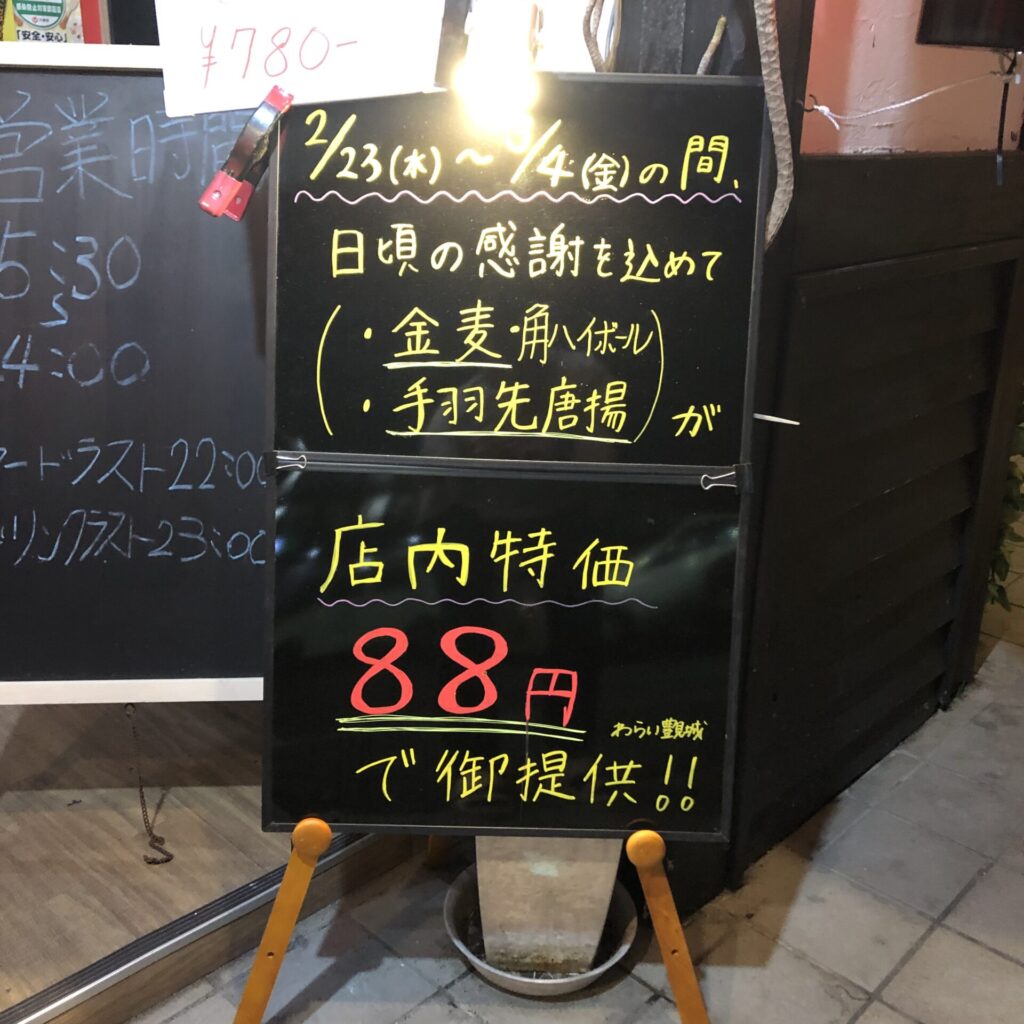 「安全・安心」
¥780-
営業時間
5:30
4:00
ードラストト22:00
リンクラスト23:00
2/23(水)〜 /4(金)の間、
日頃の感謝を込めて
・金麦・角ハイボール
・手羽先唐揚 が
店内特価
88円
わらい
で御提供!!